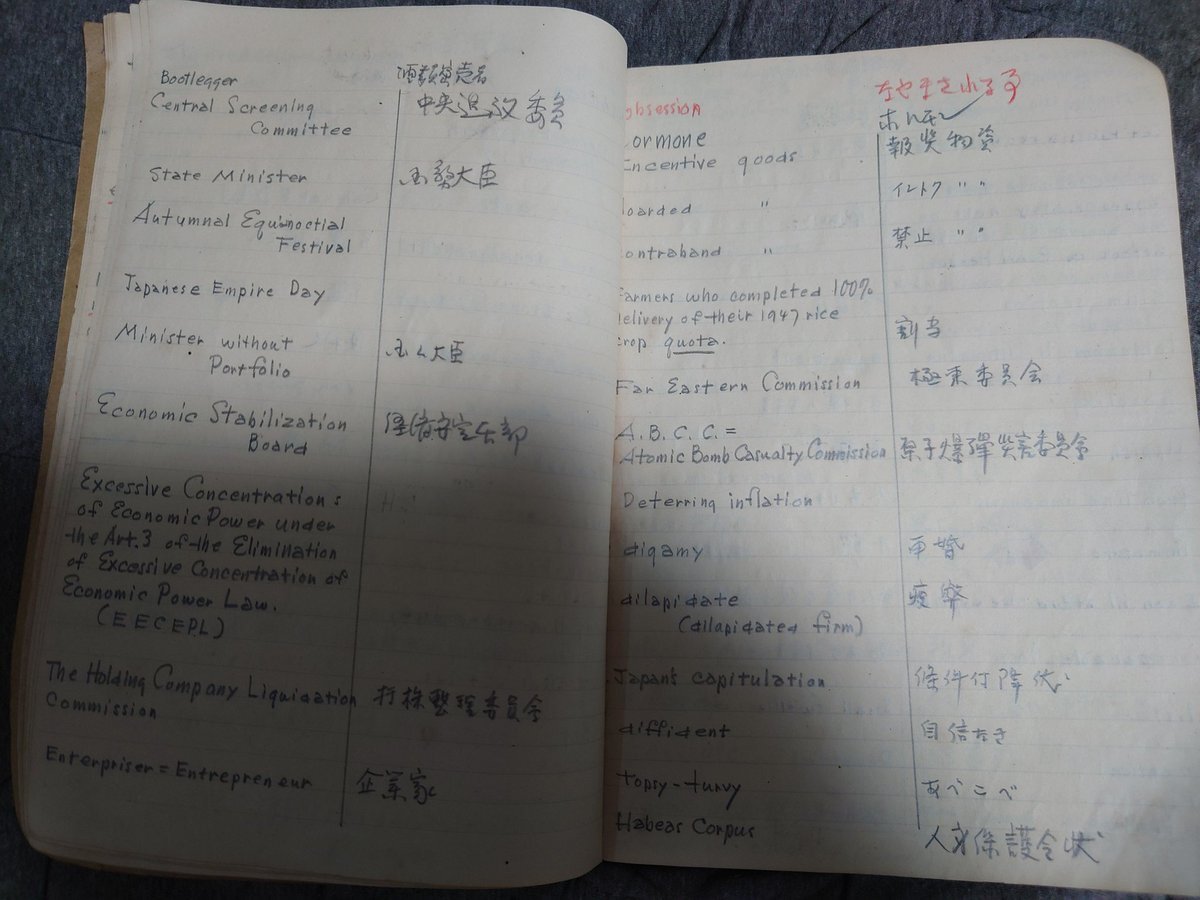 Bootlegger
Central Screening 中央
Committee 委員
State Minister 大臣
Autumnal Equinoctial
Festival
Japanese Empire Day
Minister without 大臣
Portfolio
Economic Stabilization
Board
Excessive Concentrations
of Economic Power under
the Art.3 of the Elimination
of Excessive Concentration of
Economic Power Law.
(EECEPL)
The Holding Company Liquidation 持株整理委員会
Commission
Enterpriser = Entrepreneur 企業家
obsession
ormone ホルモン
Incentive goods 報奨物資
oarded " イントク " "
ontraband " 禁止 " "
Farmers who completed 100%
delivery of their 1947 rice
crop quota. 割当
Far Eastern Commission 極東委員会
A.B.C.C. =
Atomic Bomb Casualty Commission 原子爆弾災害委員会
Deterring inflation
digamy 再婚
dilapidate 疲弊
(dilapidated firm)
Japan's capitulation 條件付降伏
diffident 自信なき
topsy-turvy あべこべ
Habeas Corpus 人身保護令状